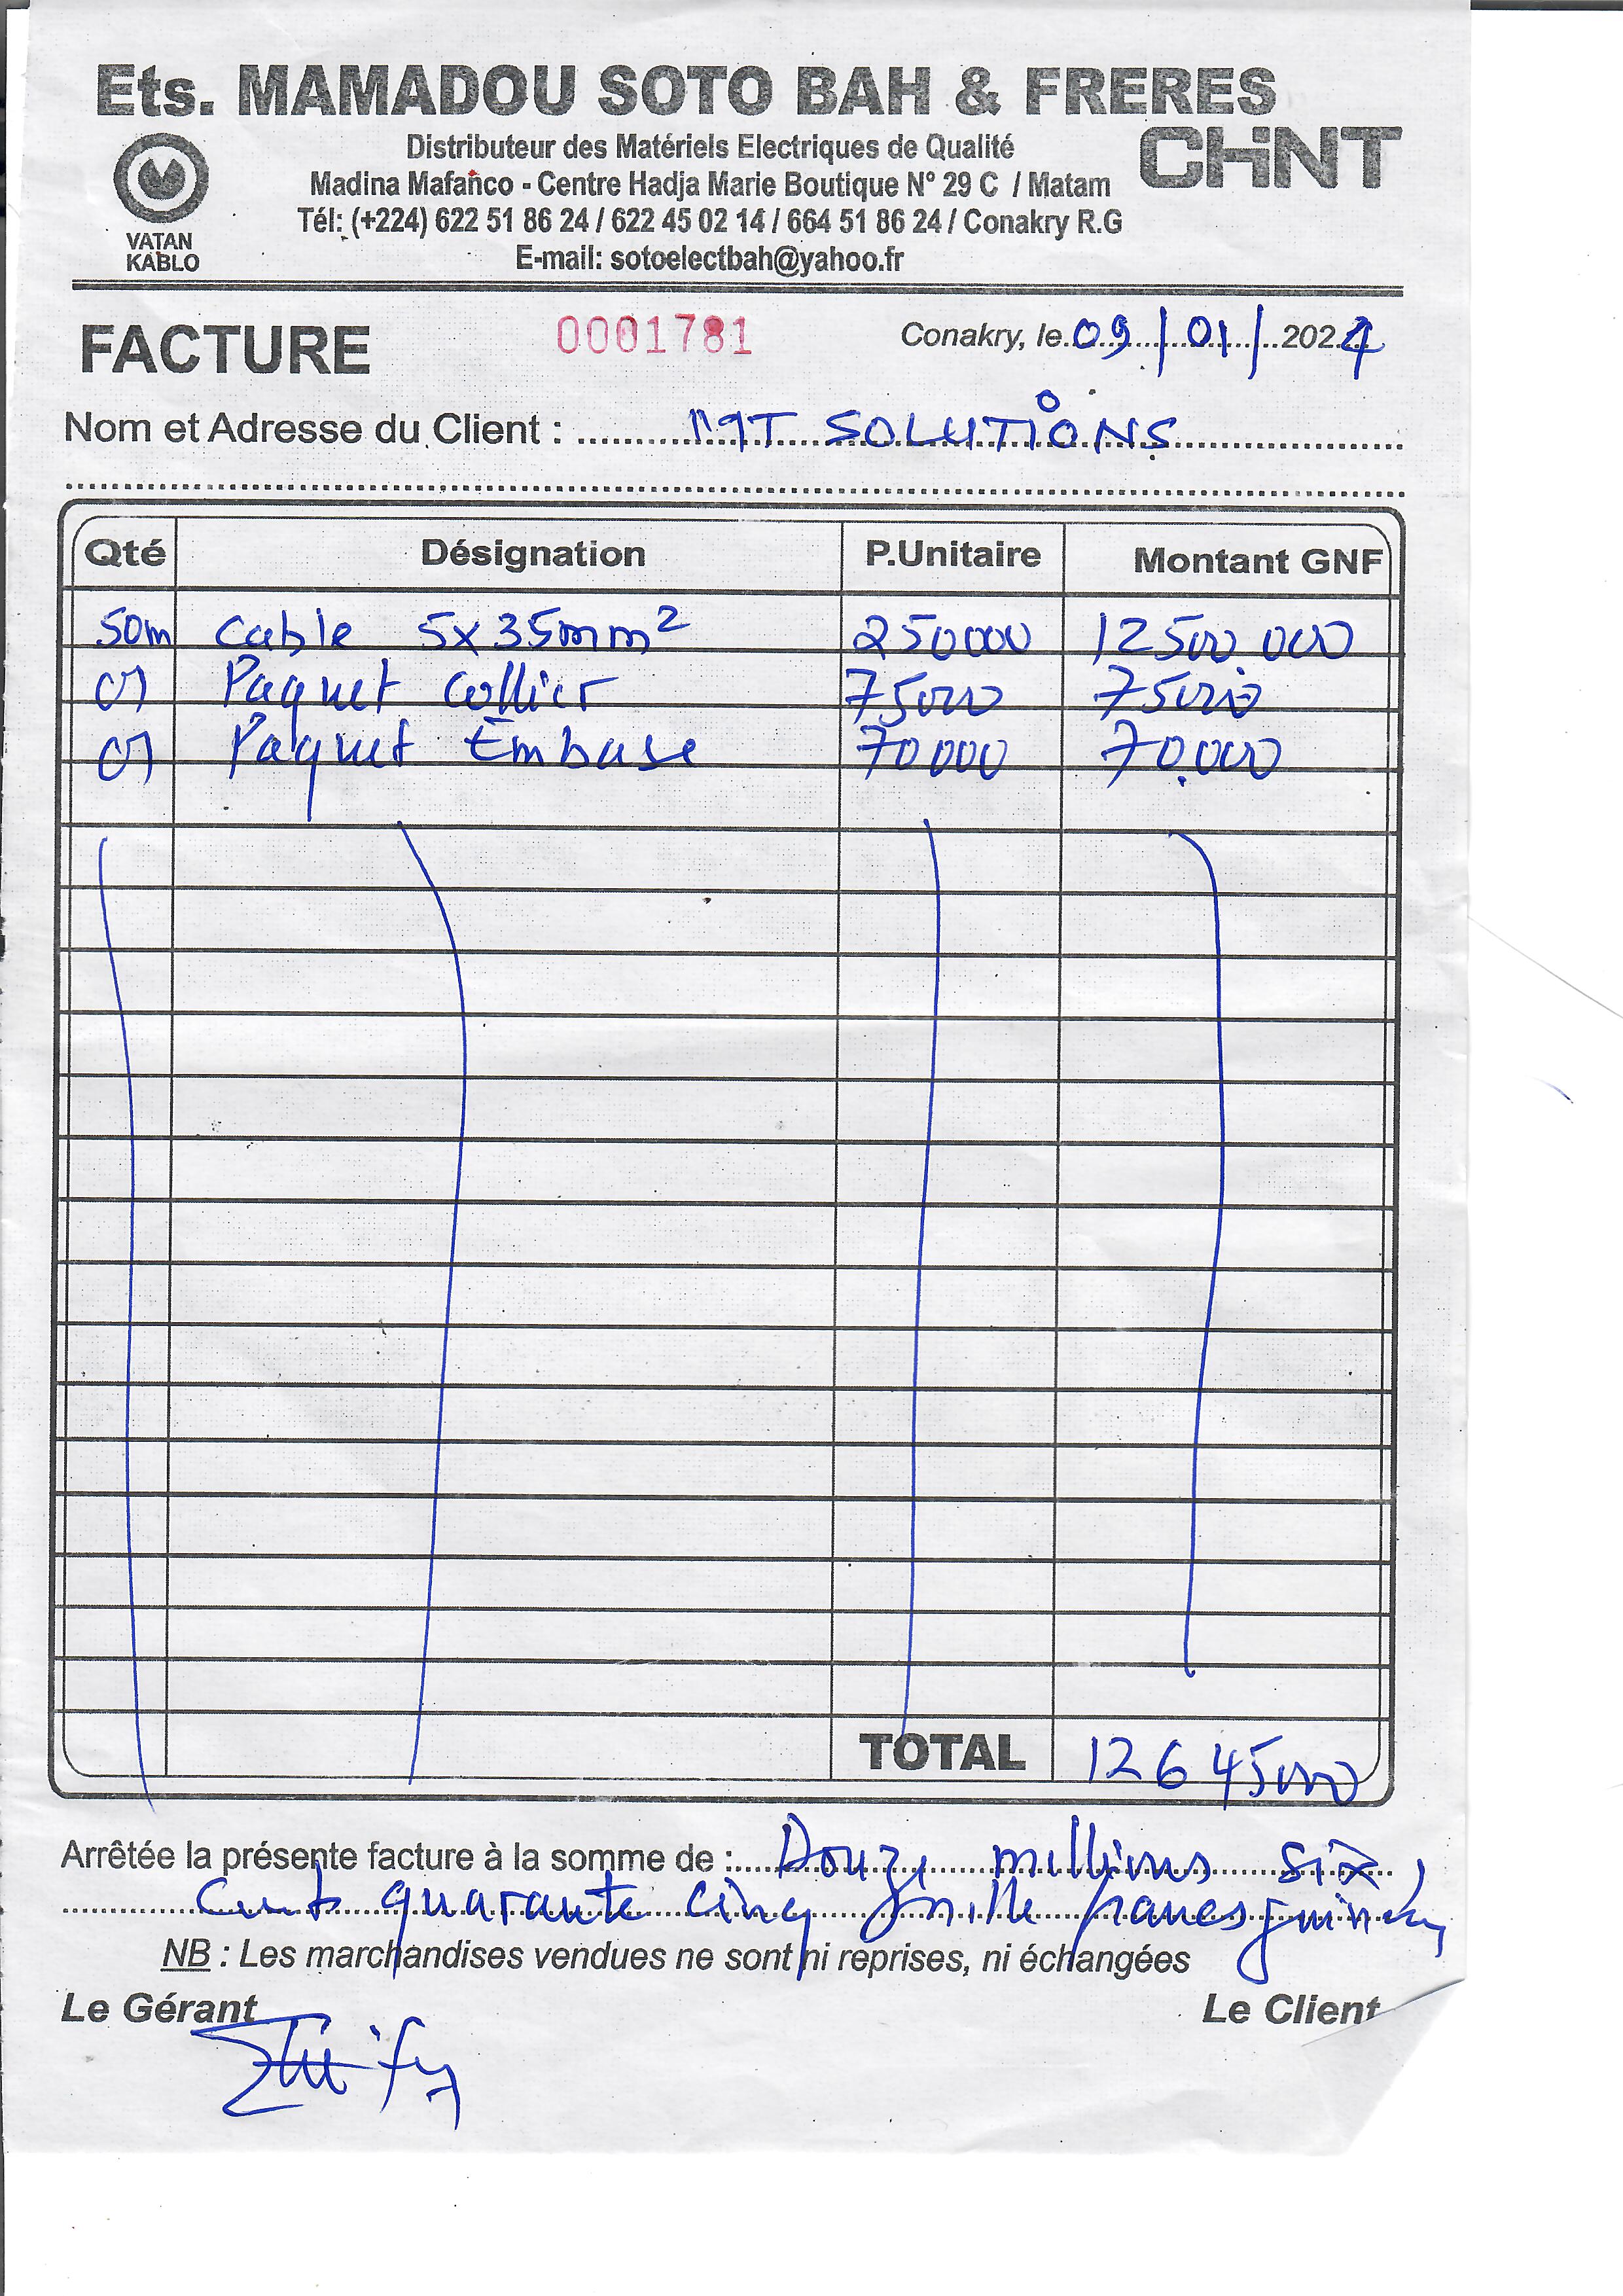 Ets. MAMADOU SOTO BAH & FRERES
VATAN KABLO
CHNT
Distributeur des Matériels Electriques de Qualité
Madina Mafanco - Centre Hadja Marie Boutique N° 29 C / Matam
Tél: (+224) 622 51 86 24 / 622 45 02 14 / 664 51 86 24 / Conakry R.G
E-mail: sotoelectbah@yahoo.fr
FACTURE 0001781 Conakry, le 09/01/2024
Nom et Adresse du Client : SOLUTIONS
Qté Désignation P.Unitaire Montant GNF
50m Cable 5x35mm² 250000 12500.000
01 Paquet Collier 75000 75000
01 Paquet Embase 70000 70.000
TOTAL 12645000
Arrêtée la présente facture à la somme de : Douze millions six
cents quarante cinq mille francs guinéens
NB : Les marchandises vendues ne sont ni reprises, ni échangées
Le Gérant Le Client